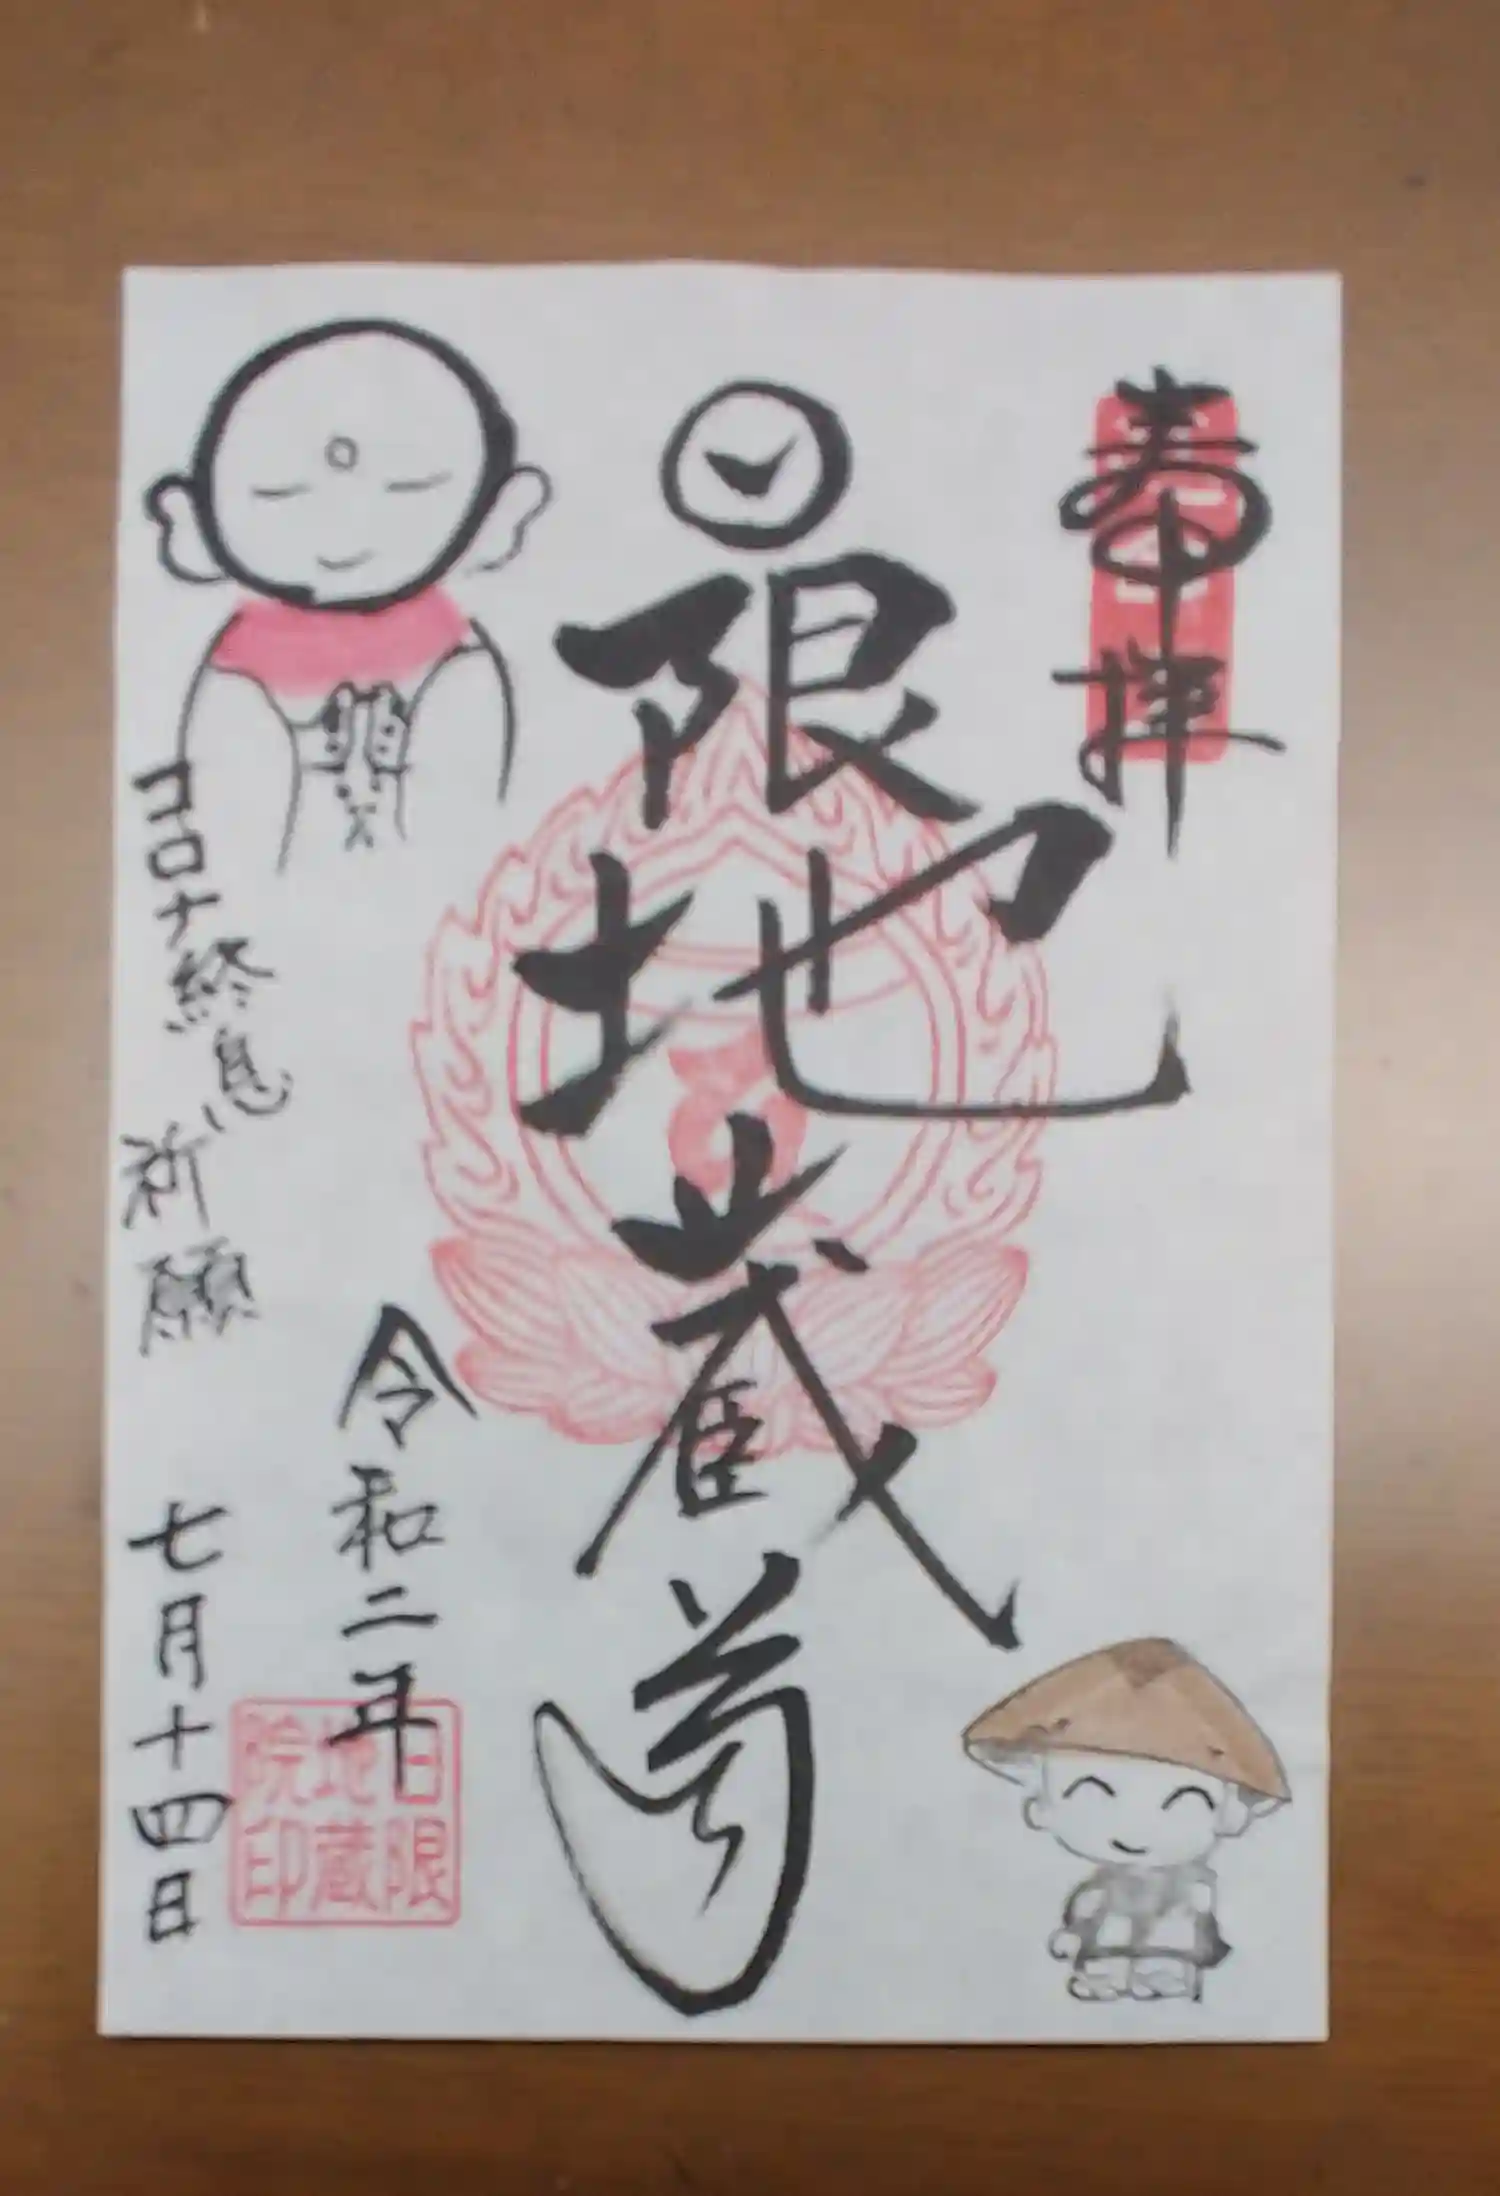 奉拝
日限地蔵尊
コロナ終息
祈願
令和二年
七月十四日
日限
地蔵
院印